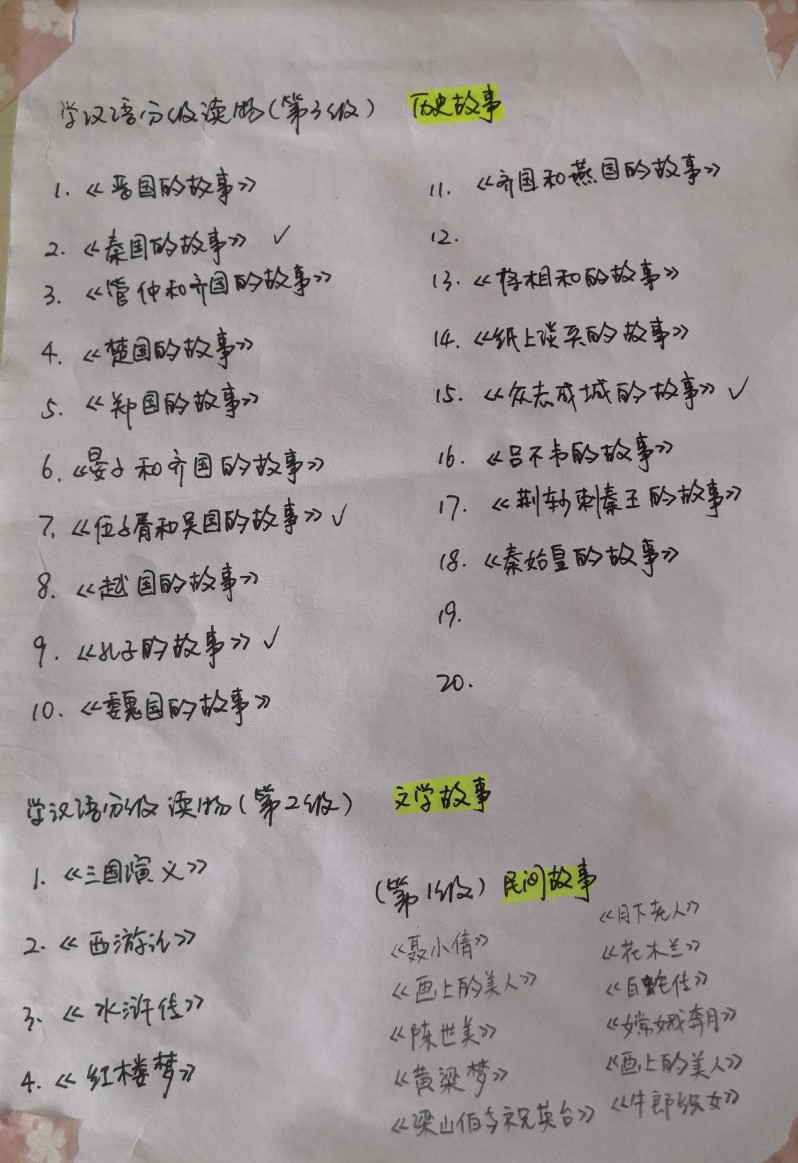 学汉语分级读物(第3级) 历史故事
1.《晋国的故事》
2.《秦国的故事》✓
3.《管仲和齐国的故事》
4.《楚国的故事》
5.《郑国的故事》
6.《晏子和齐国的故事》
7.《伍子胥和吴国的故事》✓
8.《越国的故事》
9.《孔子的故事》✓
10.《魏国的故事》
11.《齐国和燕国的故事》
12.
13.《将相和的故事》
14.《纸上谈兵的故事》
15.《众志成城的故事》✓
16.《吕不韦的故事》
17.《荆轲刺秦王的故事》
18.《秦始皇的故事》
19.
20.
学汉语分级读物(第2级) 文学故事
1.《三国演义》
2.《西游记》
3.《水浒传》
4.《红楼梦》
(第1级) 民间故事
《聂小倩》
《画上的美人》
《陈世美》
《黄粱梦》
《梁山伯与祝英台》
《月下老人》
《花木兰》
《白蛇传》
《嫦娥奔月》
《画上的美人》
《牛郎织女》